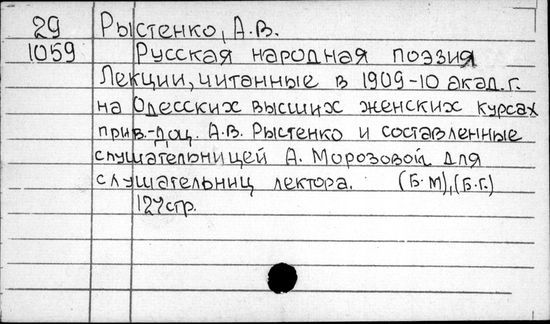 29 Рыстенко, А.В.
1059 Русская народная поэзия
Лекции, читанные в 1909-10 акад. г.
на Одесских высших женских курсах
прив.-доц. А.В. Рыстенко и составленные
слушательницей А. Морозовой для
слушательниц лектора. (Б.М), (Б.Г.)
124стр.